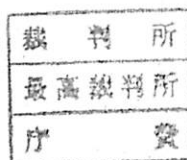 裁判所
最高裁判所
庁費